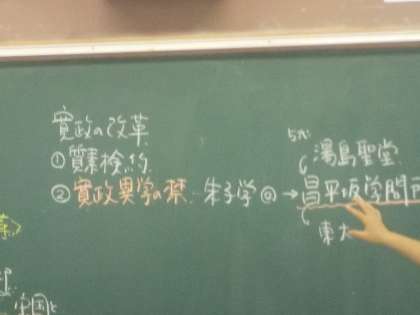 寛政の改革
①質素検約
②寛政異学の禁 朱子学◎→昌平坂学問
5代
湯島聖堂
東大
中国と